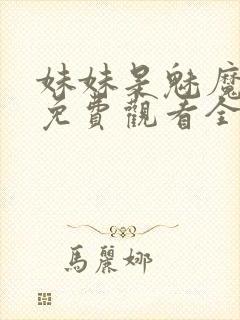 妹妹是魅魔
免費觀看全
馬麗娜